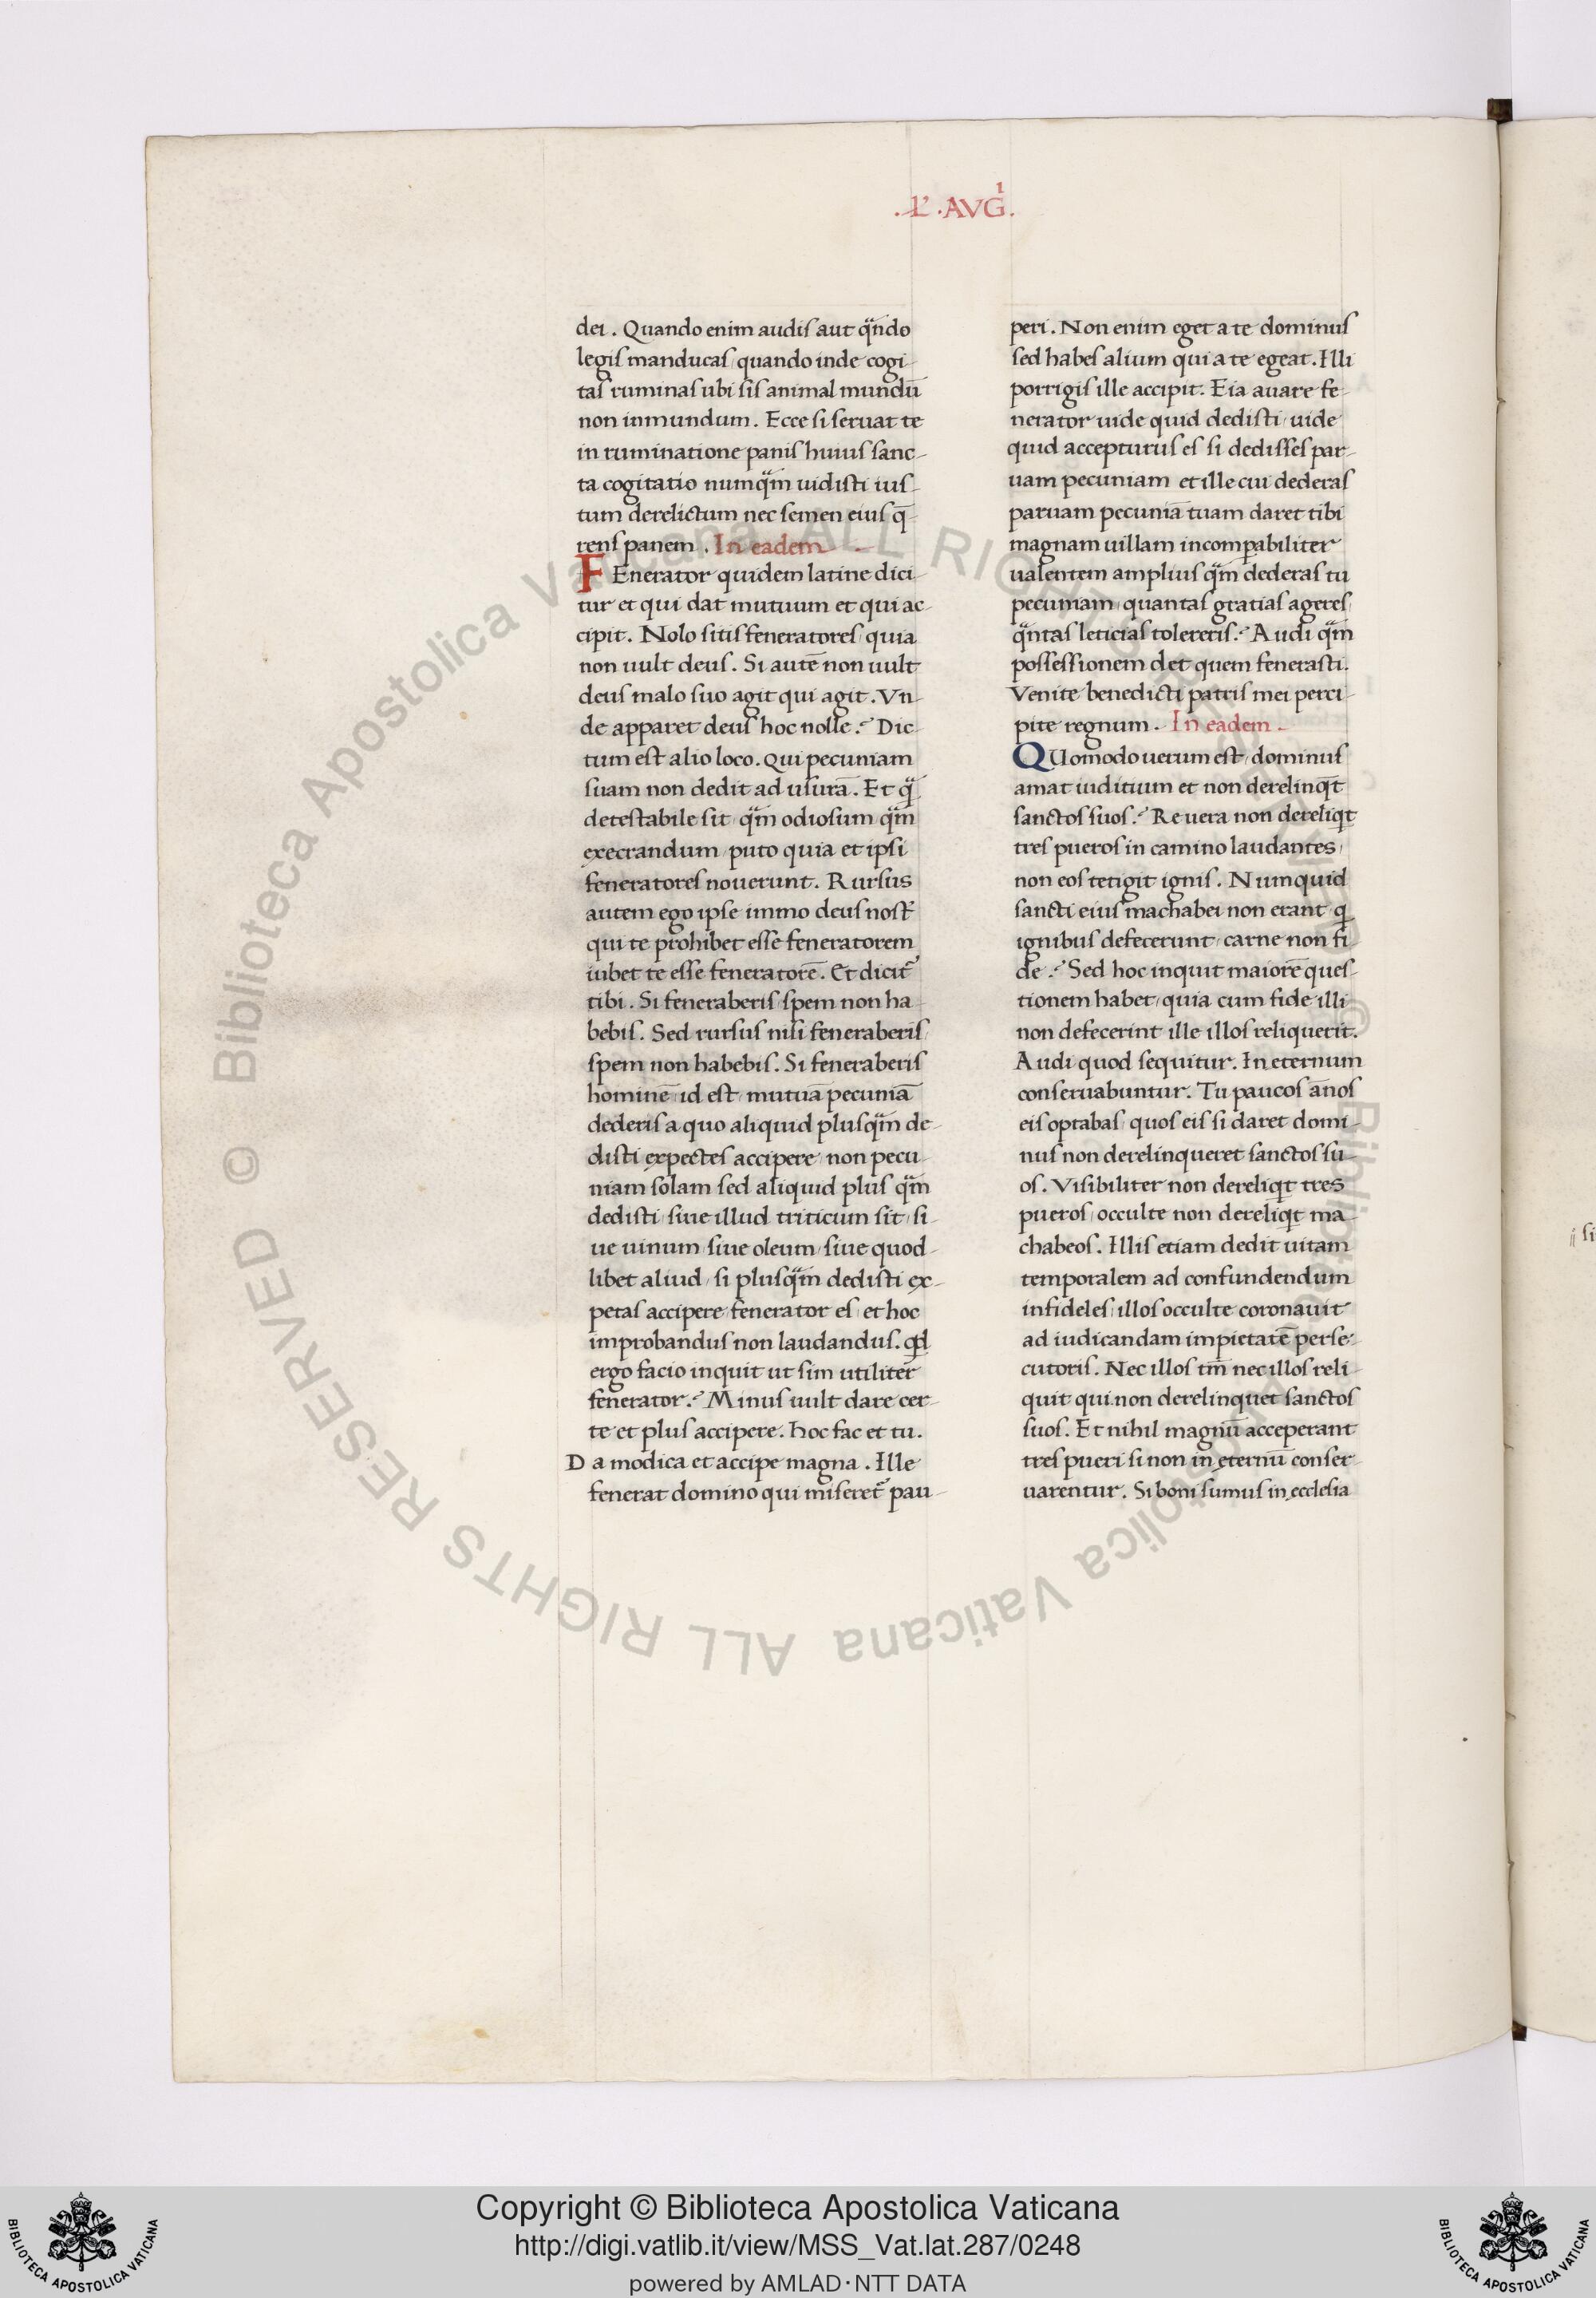 .L'.AVGⁱ.
dei. Quando enim audis aut qᷓndo
legis manducas, quando inde cogi-
tas ruminas ubi sis animal mundū
non inmundum. Ecce si seruat te
in ruminatione panis huius sanc-
ta cogitatio numqᷓm uidisti ius-
tum derelictum nec semen eius q̄-
rens panem. In eadem
FEnerator quidem latine dici-
tur et qui dat mutuum et qui ac-
cipit. Nolo sitis feneratores, quia
non uult deus. Si autē non uult
deus malo suo agit qui agit. Vn-
de apparet deus hoc nolle.? Dic-
tum est alio loco. Qui pecuniam
suam non dedit ad usurā. Et qᷓ
detestabile sit, qᷓm odiosum qᷓm
execrandum, puto quia et ipsi
feneratores nouerunt. Rursus
autem ego ipse immo deus nosť
qui te prohibet esse feneratorem
iubet te esse feneratorē. Et dicit᷑
tibi. Si feneraberis, spem non ha-
bebis. Sed rursus nisi feneraberis,
spem non habebis. Si feneraberis
hominē, id est, mutuā pecuniā
dederis a quo aliquid plusqᷓm de-
disti expectes accipere, non pecu-
niam solam sed aliquid plus qᷓm
dedisti, siue illud triticum sit, si-
ue uinum, siue oleum, siue quod-
libet aliud, si plusqᷓm dedisti ex-
petas accipere, fenerator es, et hoc
improbandus non laudandus. qd
ergo facio inquit ut sim utiliter
fenerator.? Minus uult dare cer-
te et plus accipere. hoc fac et tu.
Da modica et accipe magna. Ille
fenerat domino qui miseret᷑ pau-
peri. Non enim eget a te dominus
sed habes alium qui a te egeat. Illi
porrigis ille accipit. Eia auare fe-
nerator uide quid dedisti, uide
quid accepturus es si dedisses par-
uam pecuniam et ille cui dederas
paruam pecuniā tuam daret tibi
magnam uillam incomꝑabiliter
ualentem amplius qᷓm dederas tu
pecuniam, quantas gratias ageres,
qᷓntas leticias tolereris.? Audi qᷓm
possessionem det quem fenerasti.
Venite benedicti patris mei perci-
pite regnum. In eadem
QUomodo uerum est, dominus
amat iuditium et non derelinqͥt
sanctos suos.? Re uera non dereliqͥt
tres pueros in camino laudantes,
non eos tetigit ignis. Numquid
sancti eius machabei non erant qͥ
ignibus defecerunt, carne non fi-
de.? Sed hoc inquit maiorē ques-
tionem habet, quia cum fide illi
non defecerint ille illos reliquerit.
Audi quod sequitur. In eternum
conseruabuntur. Tu paucos ānos
eis optabas, quos eis si daret domi-
nus non derelinqueret sanctos su-
os. Visibiliter non dereliqͥt tres
pueros, occulte non dereliqͥt ma-
chabeos. Illis etiam dedit uitam
temporalem ad confundendum
infideles, illos occulte coronauit
ad iudicandam impietatē perse-
cutoris. Nec illos tm̄ nec illos reli-
quit qui non derelinquet sanctos
suos. Et nihil magnū acceperant
tres pueri si non in ęternū conser-
uarentur. Si boni sumus in ęcclesia
Copyright © Biblioteca Apostolica Vaticana
http://digi.vatlib.it/view/MSS_Vat.lat.287/0248
powered by AMLAD·NTT DATA
BIBLIOTECA APOSTOLICA VATICANA
BIBLIOTECA APOSTOLICA VATICANA
© Biblioteca Apostolica Vaticana ALL RIGHTS RESERVED © Biblioteca Apostolica Vaticana ALL RIGHTS RESERVED